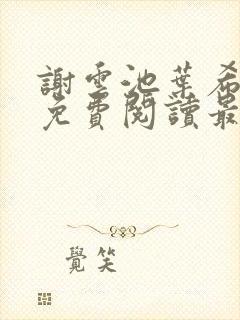 謝雲池葉希
免費閱讀最
覺笑